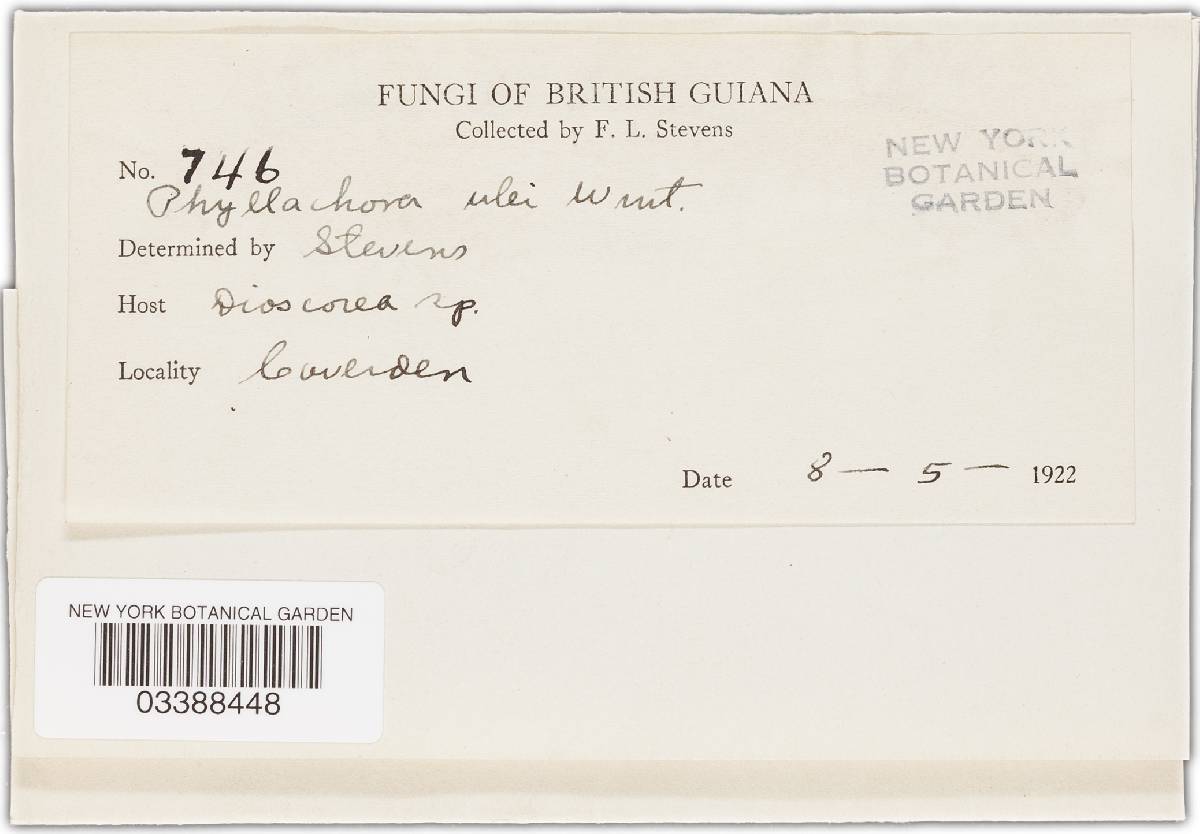 FUNGI OF BRITISH GUIANA
Collected by F. L. Stevens
No. 746
Phyllachora ulei Wint.
Determined by Stevens
Host Dioscorea sp.
Locality Coverden
Date 8 — 5 — 1922
NEW YORK
BOTANICAL
GARDEN
NEW YORK BOTANICAL GARDEN
03388448